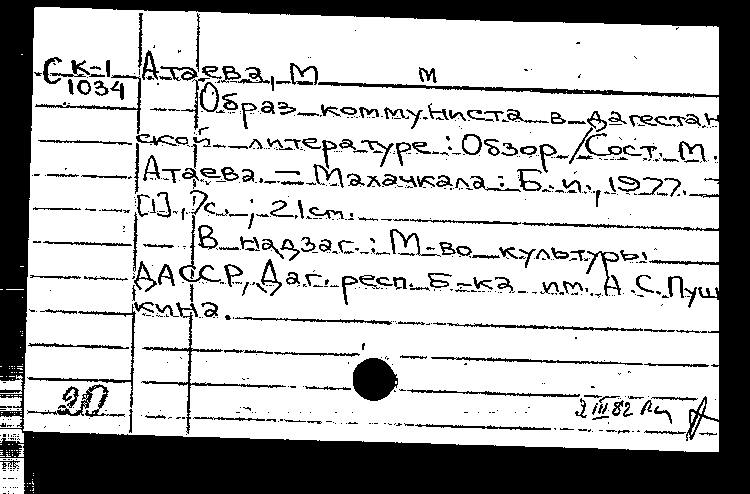 Є К-1 Атаева, М м
1034
Образ коммуниста в дагестан
ской литературе : Обзор / Сост. М.
Атаева. — Махачкала : Б. и., 1977. —
[1], 7с. ; 21см.
В надзаг. : М-во культуры
ДАССР, Даг. респ. б-ка им. А.С. Пуш
кина.
20
2 III 82